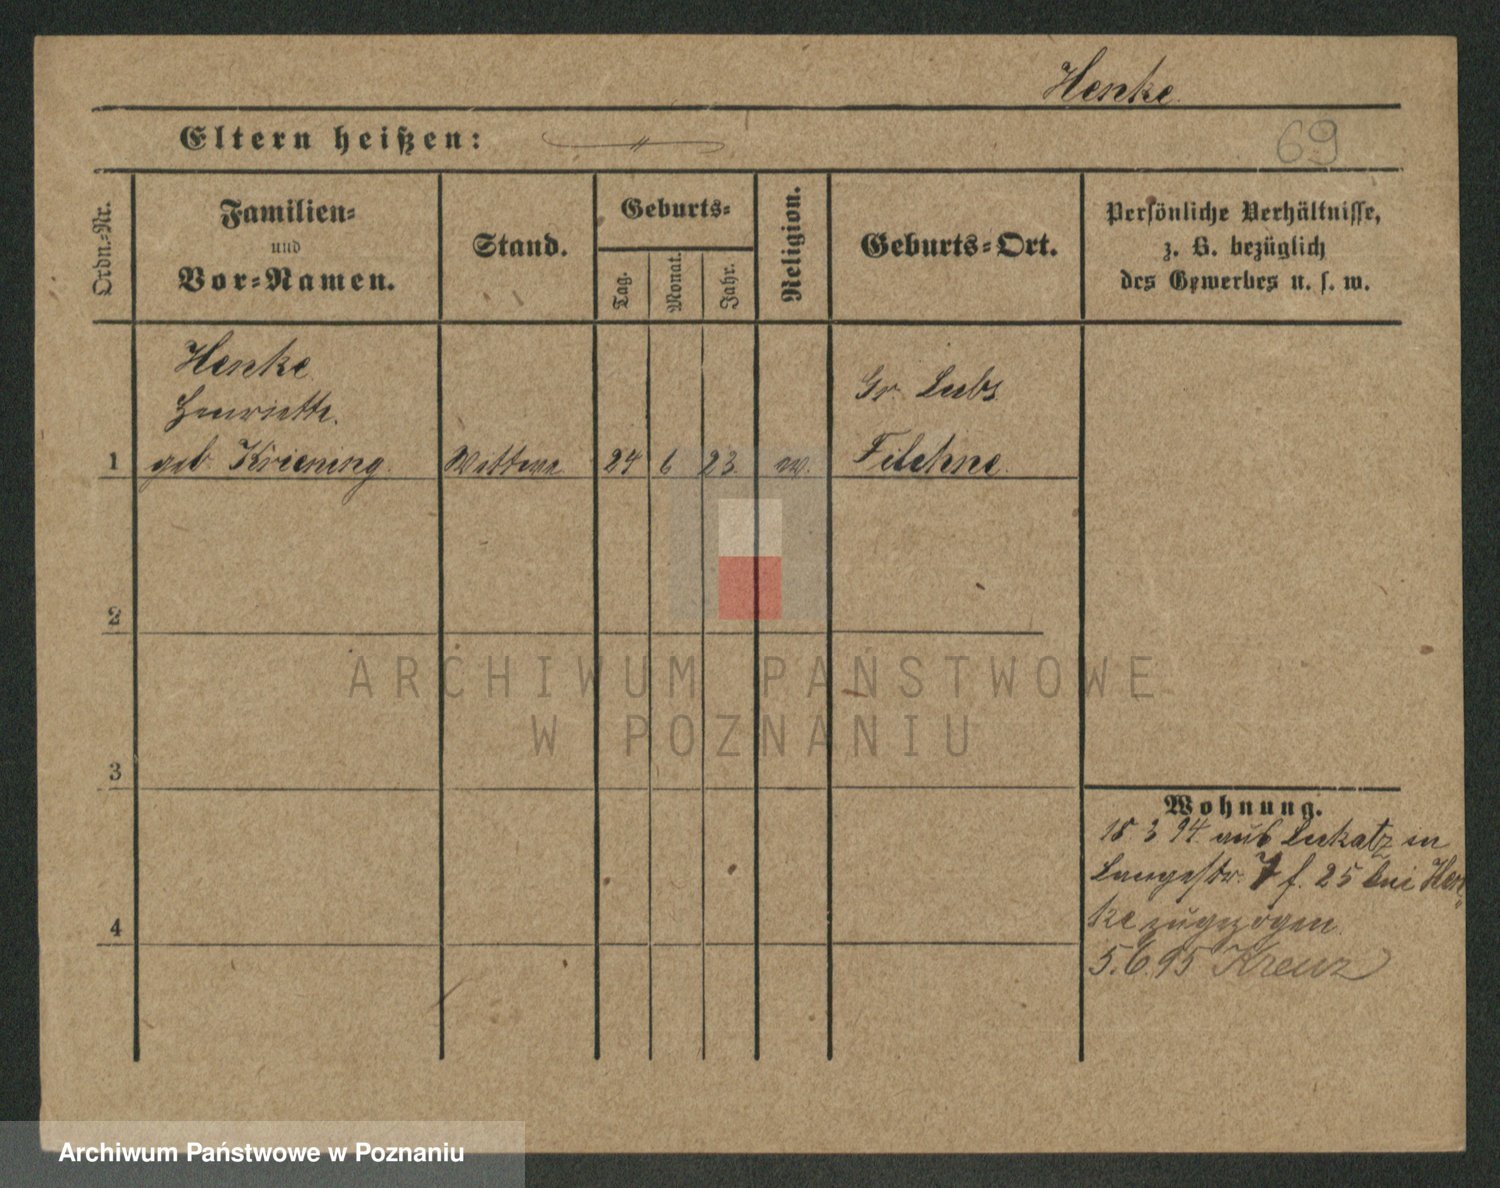 Henke
Eltern heißen:
69
Ordn.-Nr.
Familien-
und
Vor-Namen.
Stand.
Geburts-
Tag.
Monat.
Jahr.
Religion.
Geburts-Ort.
Persönliche Verhältnisse,
z. B. bezüglich
des Gewerbes u. s. w.
Henke
Henriette.
1 geb Kriening Wittwe 24 6 23
Gr. Lubs
Filehne
2
3
4
Wohnung.
18 3 94 aus Lukatz in
Langestr. 7 f. 25 bei Hen
ke zugezogen.
5.6.95 Kreuz
ARCHIWUM PAŃSTWOWE
W POZNANIU
Archiwum Państwowe w Poznaniu